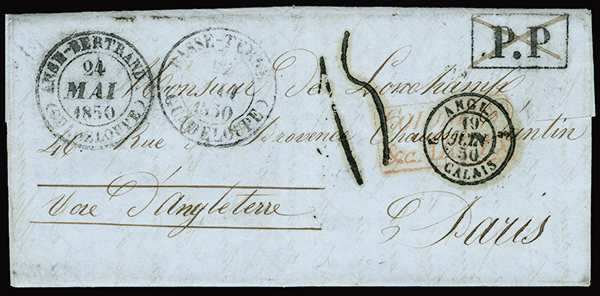 ANSE-BERTRAND
24
MAI
1850
(GUADELOUPE)
BASSE-TERRE
1850
(GUADELOUPE)
P.P
15
Monsieur De Lonchampt
46. Rue de Provence Chaussée d'Antin
ANGL.
19
JUIN
50
CALAIS
Voie d'Angleterre
à Paris